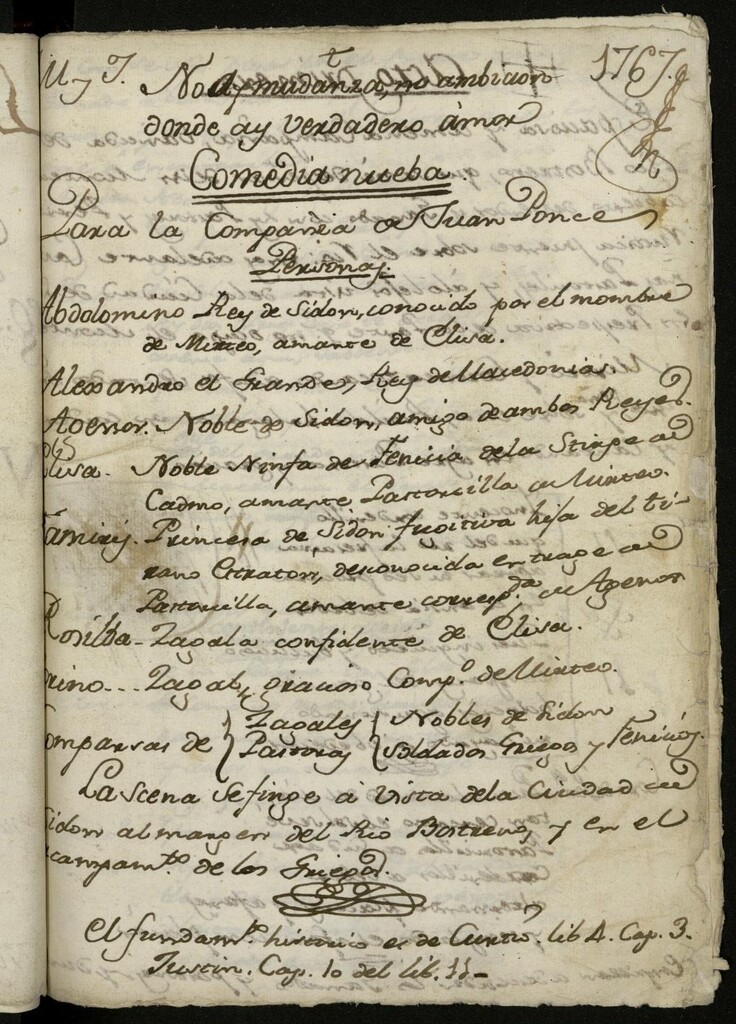 M. y J. 1767.
No ay mudanza, no ambicion
donde ay verdadero ámor
Comedia nueba.
Para la Compañia de Juan Ponce
Personas.
Abdolomino Rey de Sidon, conocido por el nombre
de Mirteo, amante de Elisa.
Alexandro el Grande, Rey de Macedonia.
Agenor. Noble de Sidon, amigo de ambos Reyes.
Elisa. Noble Ninfa de Fenicia de la Stirpe de
Cadmo, amante Pastorcilla de Mirteo.
Tamiris. Princesa de Sidon fugitiva hija del ti-
rano Estraton, desconocida en trage de
Pastorcilla, amante corresp.da de Agenor
Rosilba - Zagala confidente de Elisa.
rino... Zagal, gracioso Comp.o de Mirteo.
omparsas de } Zagales { Nobles de Sidon
Pastores { Soldados Griegos y Fenicios.
La Scena se finge á vista de la Ciudad de
Sidon al margen del Rio Bostreno, y en el
campam.to de los Griegos.
El fundam.to historico es de Curcio. lib 4. Cap. 3.
Justin. Cap. 10 del lib. 11-